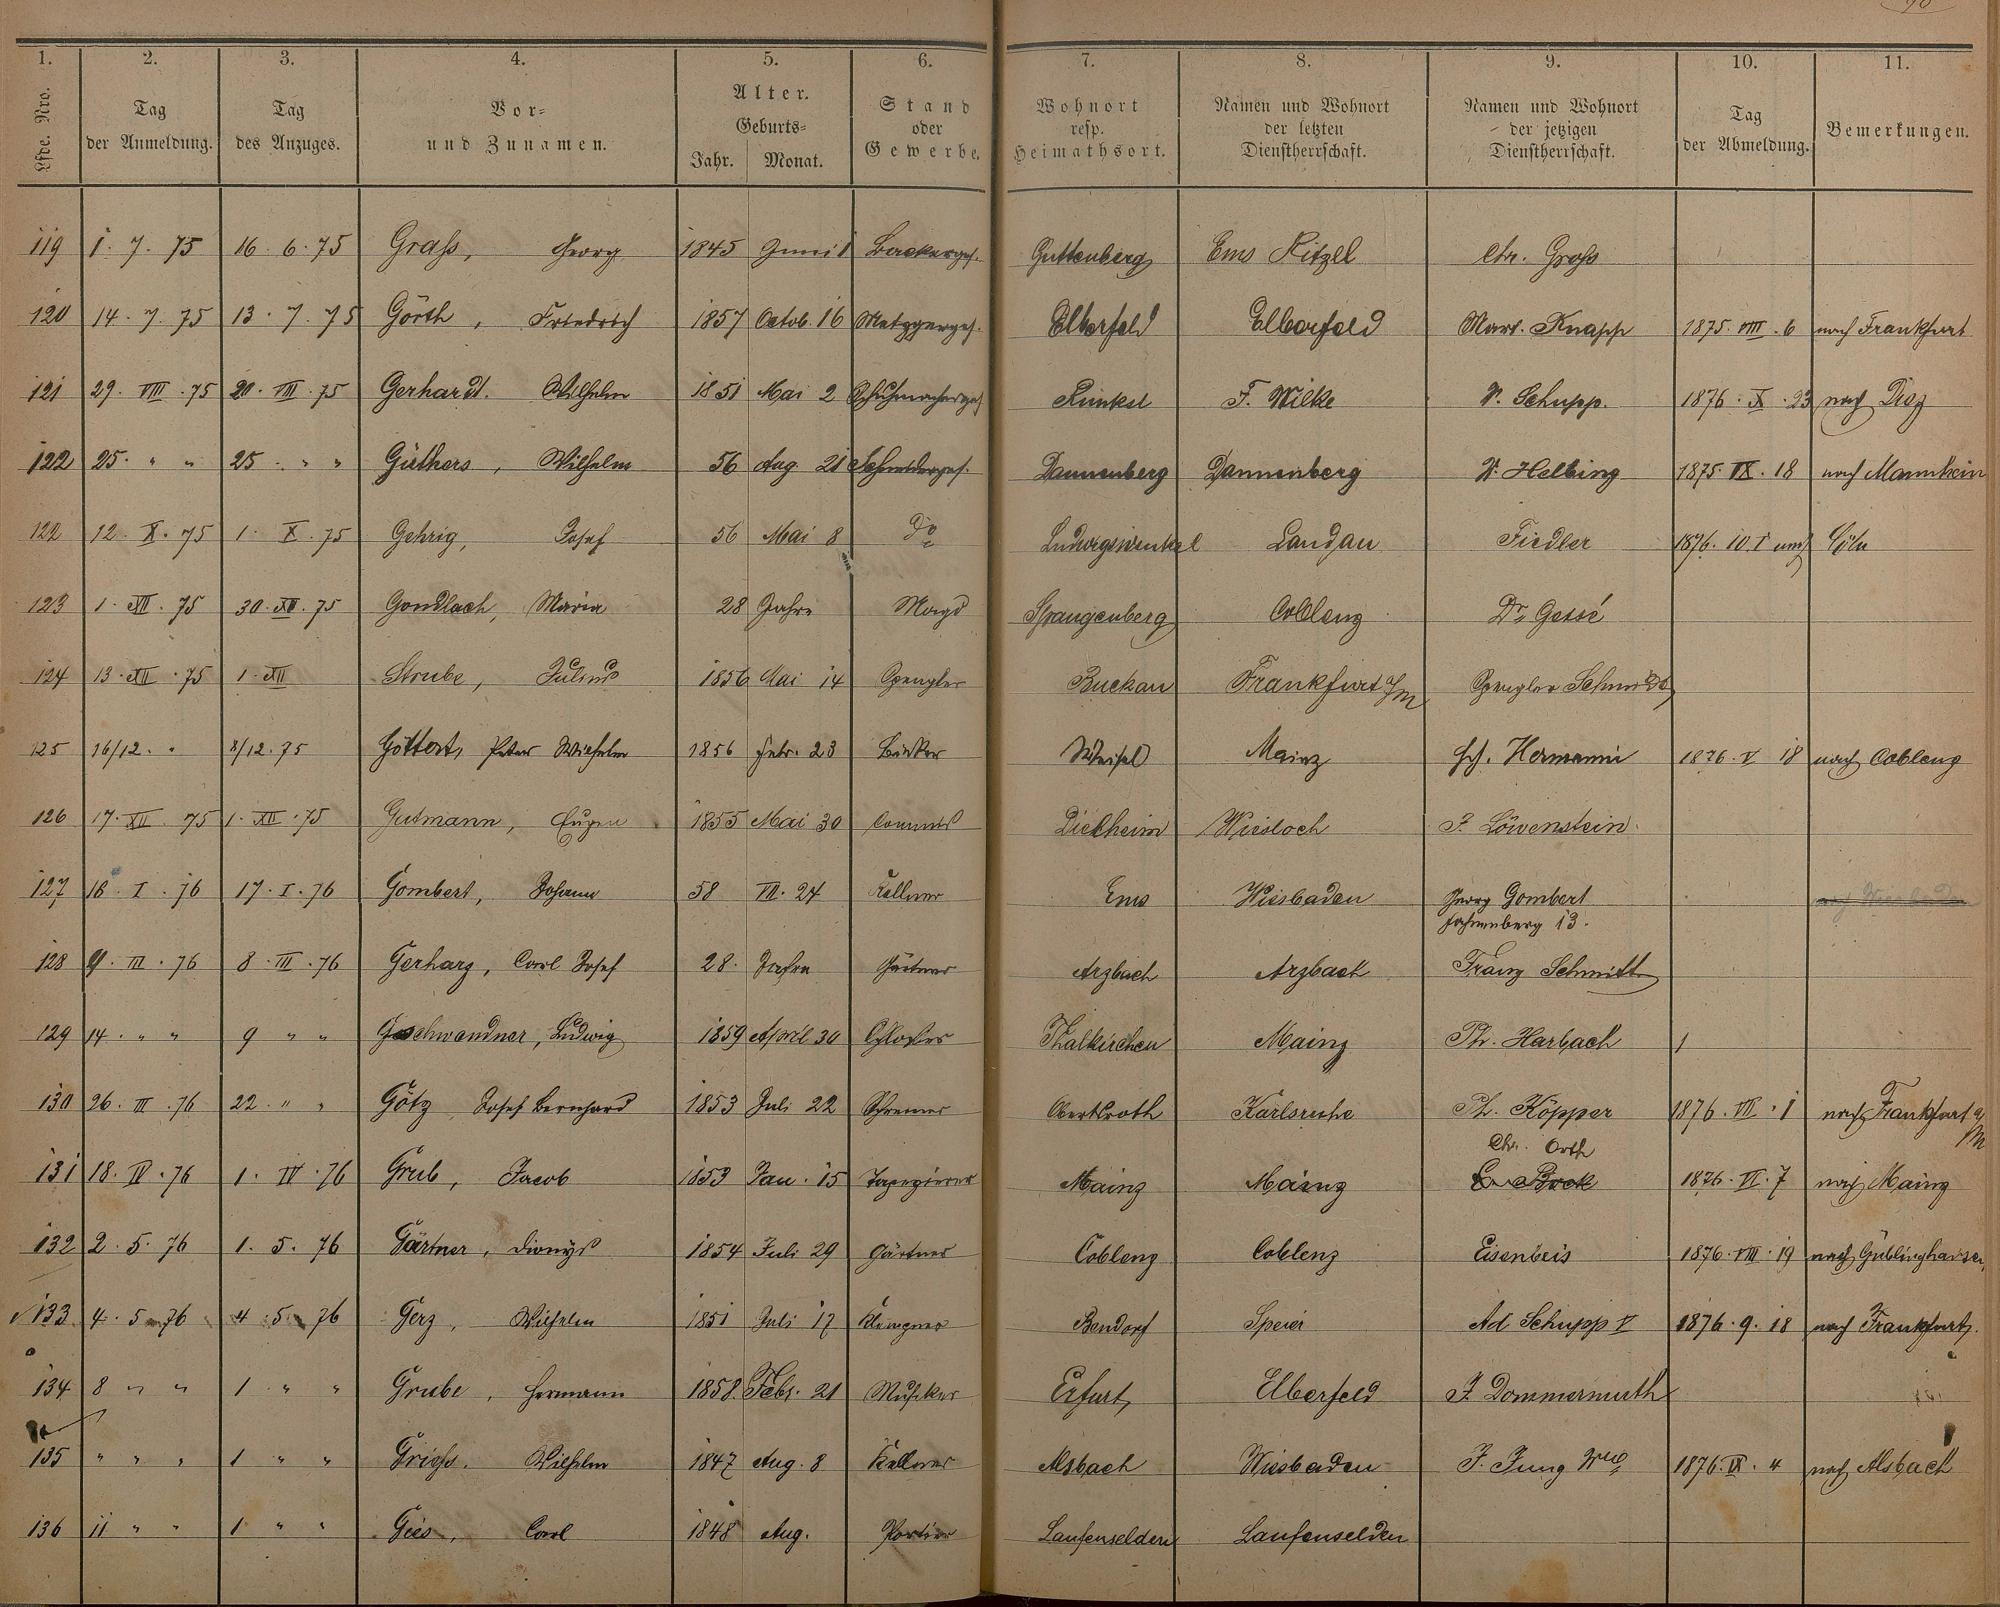 1. 2. 3. 4. 5. 6. 7. 8. 9. 10. 11.
Lfde. Nro. Tag der Anmeldung. Tag des Anzuges. Vor- und Zunamen. Alter. Geburts- Jahr. Monat. Stand oder Gewerbe. Wohnort resp. Heimathsort. Namen und Wohnort der letzten Dienstherrschaft. Namen und Wohnort der jetzigen Dienstherrschaft. Tag der Abmeldung. Bemerkungen.
119 1. 7. 75 16. 6. 75 Graß, Georg 1845 Juni 1 Backerges. Guttenberg Ems Kitzel Chr. Groß
120 14. 7. 75 13. 7. 75 Görth, Friedrich 1857 Octob. 16 Metzgerges. Elberfeld Elberfeld Marx. Knapp 1875. VIII. 6 nach Frankfurt
121 29. VIII. 75 20. VIII. 75 Gerhardt. Wilhelm 1851 Mai 2 Schuhmacherges Runkel F. Wilke W. Schupp. 1876. X. 23 nach Diez
122 25. " " 25. " " Güthers, Wilhelm 56 Aug 21 Schneiderges. Dannenberg Dannenberg W. Helbing 1875 IX. 18 nach Mannheim
122 12. X. 75 1. X. 75 Gehrig, Josef 56 Mai 8 do Ludwigswinkel Landau Fiedler 1876. 10. I nach Cöln
123 1. XII. 75 30. XII. 75 Gondlach, Maria 28 Jahre Magd Spangenberg Coblenz Dr. Gessé
124 13. XII. 75 1. XII Strube, Julius 1856 Mai 14 Spengler Buckau Frankfurt a/M Spengler Schmidt
125 16/12. " 8/12. 75 Göttert, Peter Wilhelm 1856 Febr. 23 Bäcker Weisel Mainz Hch. Hermanni 1876. V 18 nach Coblenz
126 17. XII. 75 1. XII. 75 Gutmann, Eugen 1855 Mai 30 Commis Dielheim Wiesloch J. Löwenstein.
127 18. I. 76 17. I. 76 Gombert, Johann 58 VII. 24 Kellner Ems Wiesbaden Georg Gombert
13.
128 9. III. 76 8. III. 76 Gerharz, Carl Josef 28. Jahre Gärtner Arzbach Arzbach Franz Schmitt
129 14. " " 9 " " Geschwendner, Ludwig 1859 April 30 Schlosser Thalkirchen Mainz Ph. Harbach 1
130 26. III. 76 22. " " Götz Josef Bernhard 1853 Juli 22 Schreiner Oberkroth Karlsruhe Ph. Köpper 1876. VII. 1 nach Frankfurt a/M
Chr. Orth
131 18. IV. 76 1. IV. 76 Grub, Jacob 1853 Jan. 15 Tapezierer Mainz Mainz 1876. VI. 7 nach Mainz
132 2. 5. 76 1. 5. 76 Gärtner, Dionys 1854 Juli 29 Gärtner Coblenz Coblenz Eisenbeis 1876. VIII. 19 nach
133 4. 5. 76 4. 5. 76 Gerz, Wilhelm 1851 Juli 17 Klempner Bendorf Speier Ad Schupp V 1876. 9. 18 nach Frankfurt.
134 8 " " 1 " " Grube, Hermann 1858. Febr. 21 Musiker Erfurt Elberfeld J. Dommermuth
135 " " " 1 " " Grieß. Wilhelm 1847 Aug. 8 Kellner Alsbach Wiesbaden J. Jung Wwe 1876. IX. 4 nach Alsbach
136 11 " " 1 " " Gies, Carl 1848 Aug. Portier Laufenselden Laufenselden